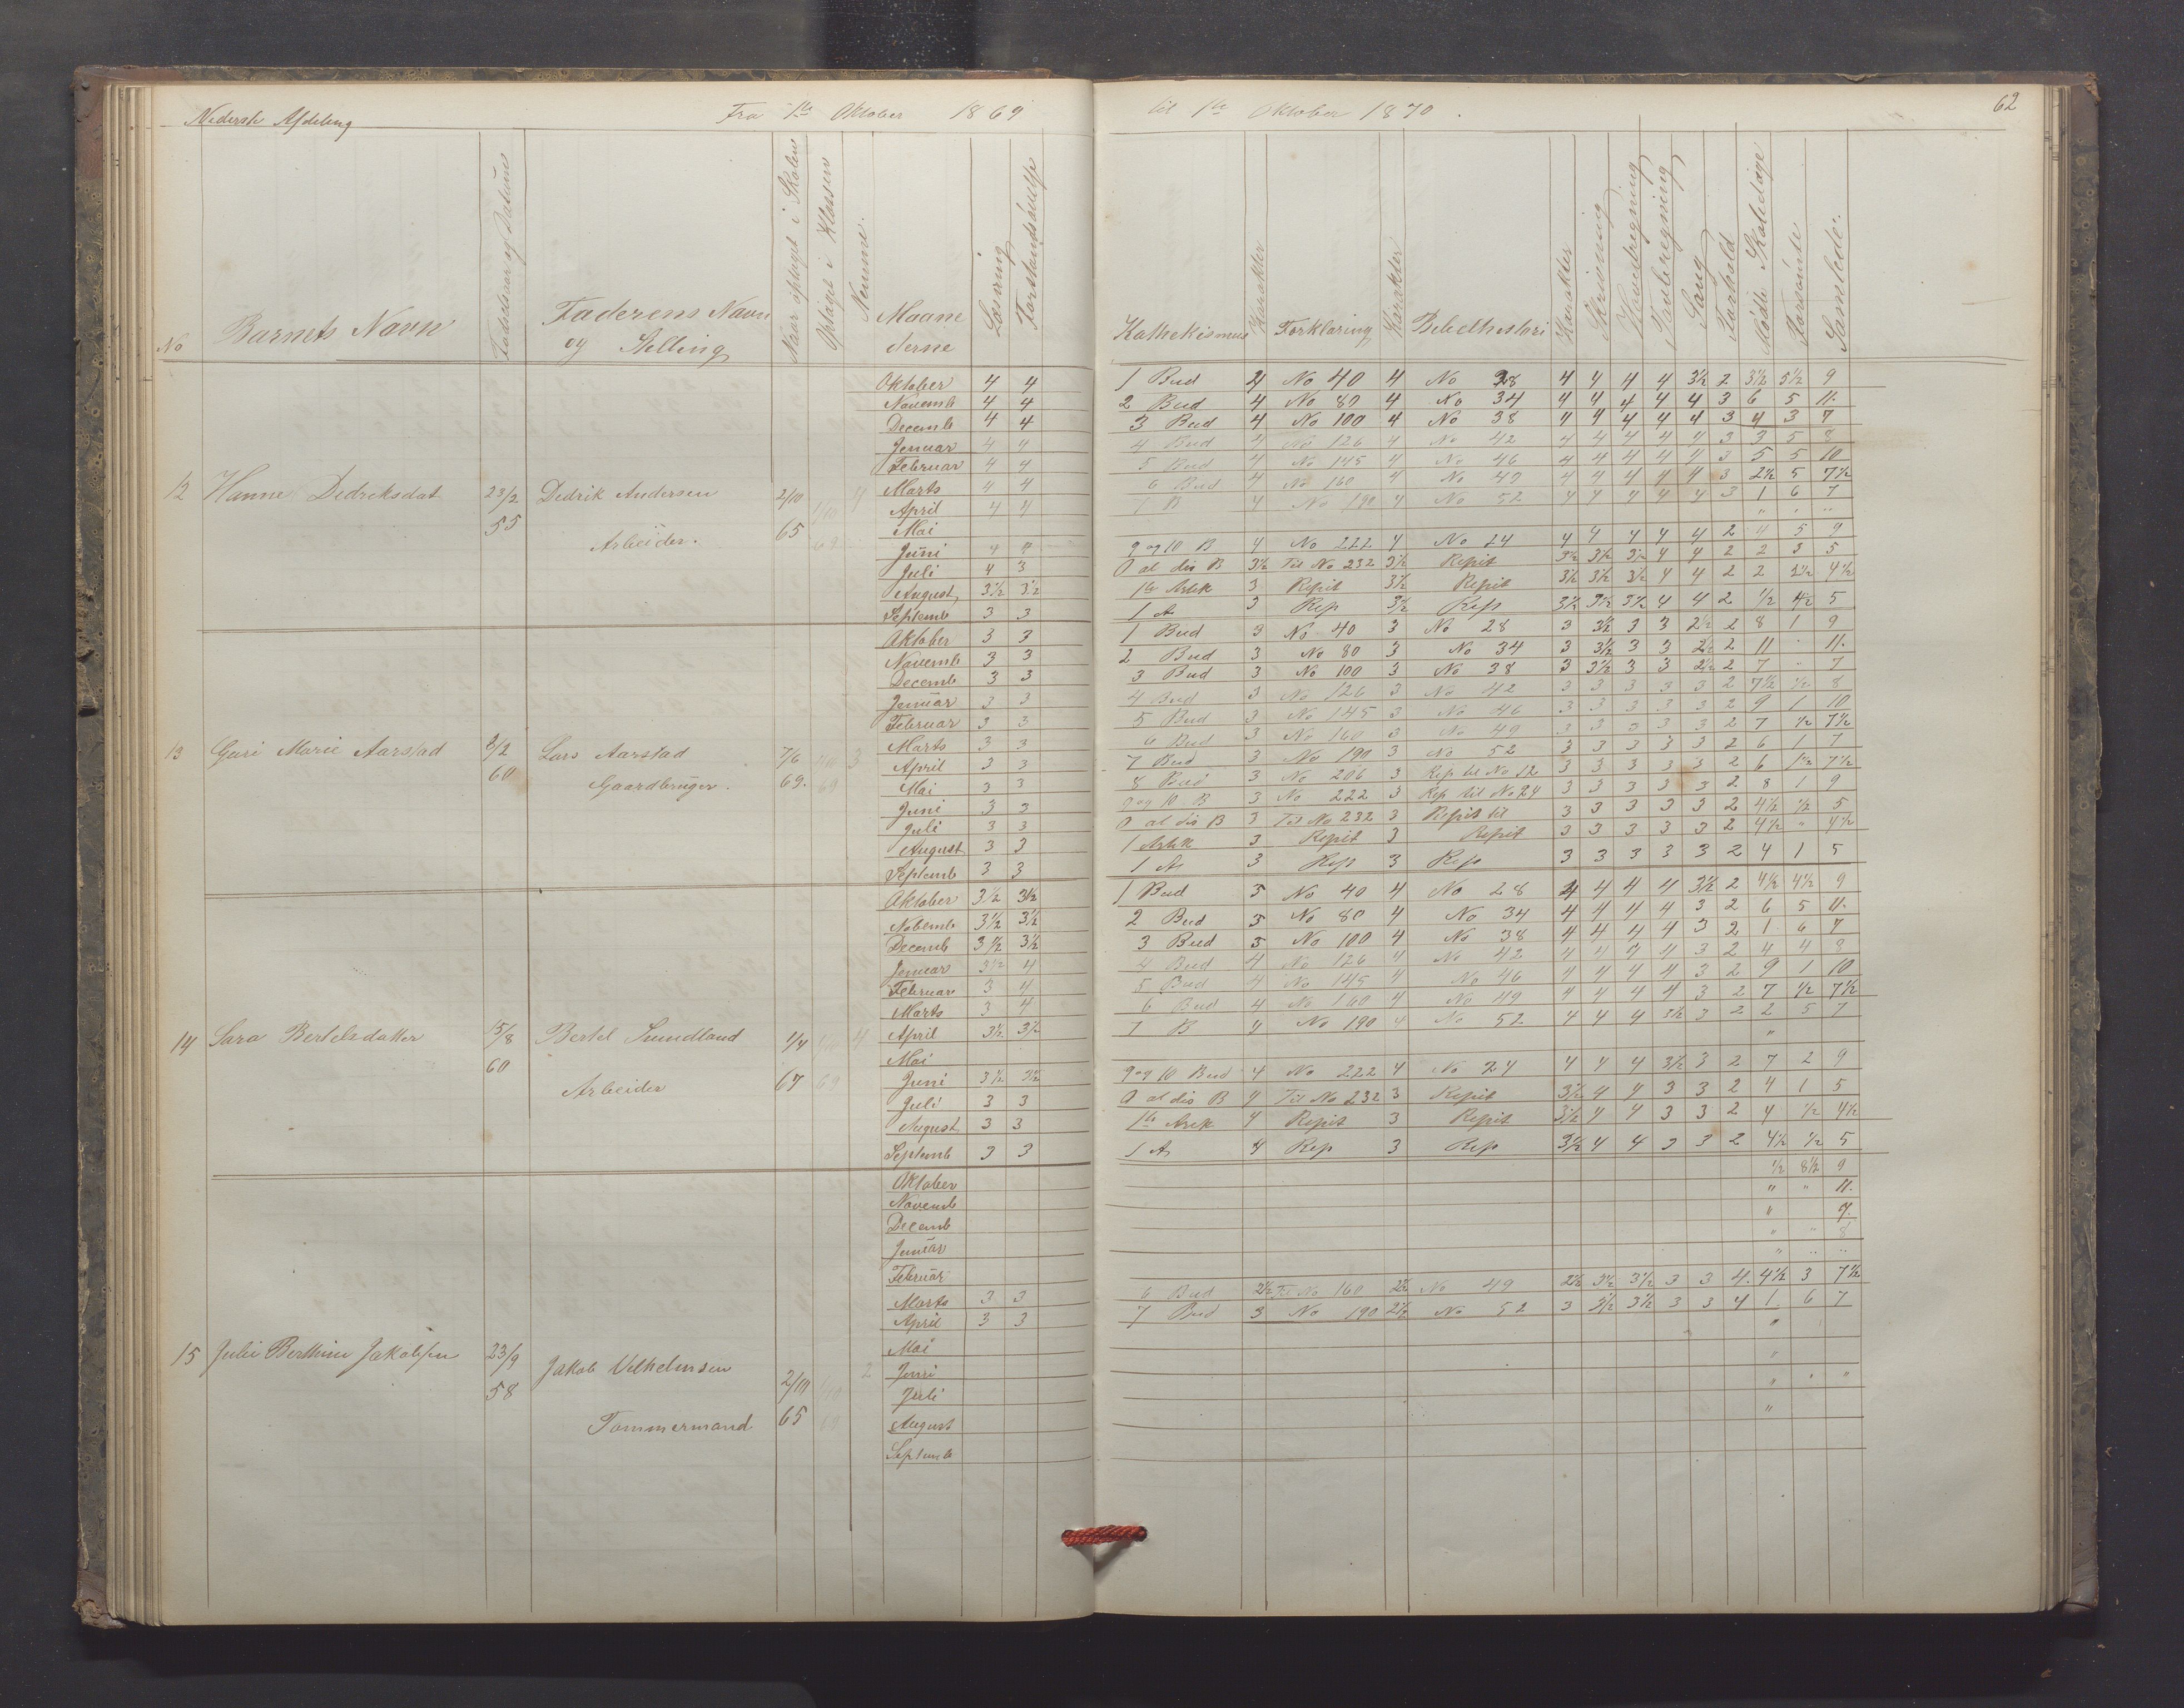 Nederste Afdeling Fra 1te Oktober 1869 til 1te Oktober 1870. 62
No Barnets Navn Fødselsaar og Datum Faderens Navn og Stilling Naar optaget i Skolen Optaget i Klassen Nemme. Maanederne Læsning Forstandsøvelse Kathekismus Karakter Forklaring Karakter Bibelhistori Karakter Skrivning Hovedregning Tavleregning Sang Forhold Mødte Skoledage Forsømte Samlede.
12 Hanne Dedriksdat 23/2 55 Dedrik Andersen Arbeider. 2/10 65 1/10 69 4
Oktober 4 4 1 Bud 4 No 40 4 No 28 4 4 4 4 3½ 2 3½ 5½ 9
Novemb 4 4 2 Bud 4 No 80 4 No 34 4 4 4 4 4 3 6 5 11.
Decemb 4 4 3 Bud 4 No 100 4 No 38 4 4 4 4 4 3 4 3 7
Januar 4 4 4 Bud 4 No 126 4 No 42 4 4 4 4 4 3 3 5 8
Februar 4 4 5 Bud 4 No 145 4 No 46 4 4 4 4 4 3 5 5 10
Marts 4 4 6 Bud 4 No 160 4 No 49 4 4 4 4 4 3 2½ 5 7½
April 4 4 7 B 4 No 190 4 No 52 4 4 4 4 4 3 1 6 7
Mai " " "
Juni 4 4 9 og 10 B 4 No 222 4 No 24 4 4 4 4 4 2 4 5 9
Juli 4 3 O al dis B 3½ Til No 232 3½ Repit 3½ 3½ 3½ 4 4 2 2 3 5
August 3½ 3½ 1te Artk 3 Repit 3½ Repit 3½ 3½ 3½ 4 4 2 2 2½ 4½
Septemb 3 3 1 A 3 Rep 3½ Rep 3½ 3½ 3½ 4 4 2 ½ 4½ 5
13 Guri Marie Aarstad 3/2 60 Lars Aarstad Gaardbruger. 7/6 69. 1/10 69 3
Oktober 3 3 1 Bud 3 No 40 3 No 28 3 3½ 3 3 2½ 2 8 1 9
Novemb 3 3 2 Bud 3 No 80 3 No 34 3 3½ 3 3 2½ 2 11 " 11.
Decemb 3 3 3 Bud 3 No 100 3 No 38 3 3½ 3 3 2½ 2 7 " 7
Januar 3 3 4 Bud 3 No 126 3 No 42 3 3 3 3 3 2 7½ ½ 8
Februar 3 3 5 Bud 3 No 145 3 No 46 3 3 3 3 3 2 9 1 10
Marts 3 3 6 Bud 3 No 160 3 No 49 3 3 3 3 3 2 7 ½ 7½
April 3 3 7 Bud 3 No 190 3 No 52 3 3 3 3 3 2 6 1 7
Mai 3 3 8 Bud 3 No 206 3 Rep til No 12 3 3 3 3 3 2 6 1½ 7½
Juni 3 3 9 og 10 B 3 No 222 3 Rep til No 24 3 3 3 3 3 2 8 1 9
Juli 3 3 O al dis B 3 Til No 232 3 Repit til 3 3 3 3 3 2 4½ ½ 5
August 3 3 1 Artk 3 Repit 3 Repit 3 3 3 3 3 2 4½ " 4½
Septemb 3 3 1 A 3 Rep 3 Rep 3 3 3 3 3 2 4 1 5
14 Sara Bertelsdatter 15/8 60 Bertel Sundland Arbeider 1/4 67 69 4
Oktober 3½ 3½ 1 Bud 3 No 40 4 No 28 4 4 4 4 3½ 2 4½ 4½ 9
Nobemb 3½ 3½ 2 Bud 3 No 80 4 No 34 4 4 4 4 3 2 6 5 11.
Decemb 3½ 3½ 3 Bud 3 No 100 4 No 38 4 4 4 4 3 2 1 6 7
Januar 3½ 4 4 Bud 4 No 126 4 No 42 4 4 4 4 3 2 4 4 8
Februar 3 4 5 Bud 4 No 145 4 No 46 4 4 4 4 3 2 9 1 10
Marts 3 4 6 Bud 4 No 160 4 No 49 4 4 4 4 3 2 7 ½ 7½
April 3½ 3½ 7 B 4 No 190 4 No 52 4 4 4 3½ 3 2 2 5 7
Mai "
Juni 3½ 3½ 9 og 10 Bud 4 No 222 4 No 24 4 4 4 3½ 3 2 7 2 9
Juli 3 3 O al dis B 4 Til No 232 3 Repit 3½ 4 4 3 3 2 4 1 5
August 3 3 1te Artk 4 Repit 3 Repit 3½ 4 4 3 3 2 4 ½ 4½
Septemb 3 3 1 A 4 Rep 3 Rep 3½ 4 4 3 3 2 4½ ½ 5
15 Julie Berthine Jakobsen 23/9 58 Jakob Vilhelmsen Tømmermand 2/10 65 1/10 69 2
Oktober ½ 8½ 9
Novemb " " 11.
Decemb " 7.
Januar " " 8
Februar " " "
Marts 3 3 6 Bud 2½ Til No 160 2½ No 49 2½ 3½ 3½ 3 3 4. 4½ 3 7½
April 3 3 7 Bud 3 No 190 2½ No 52 3 3½ 3½ 3 3 4 1. 6 7
Mai "
Juni "
Juli " " "
August "
Septemb